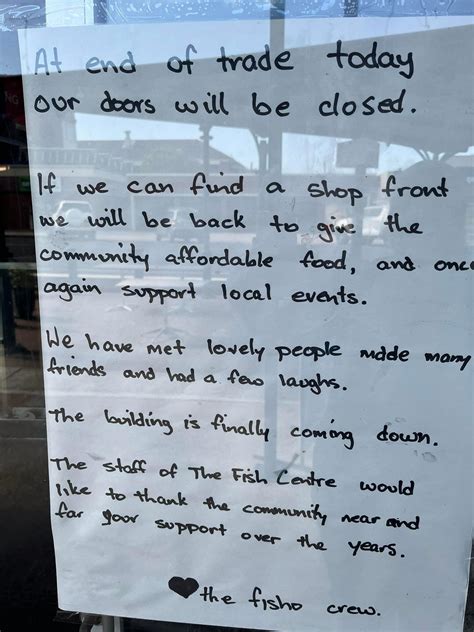 At end of trade today
our doors will be closed.
If we can find a shop front
we will be back to give the
community affordable food, and once
again support local events.
We have met lovely people made many
friends and had a few laughs.
The building is finally coming down.
The staff of The Fish Centre would
like to thank the community near and
far your support over the years.
♥the fisho crew.